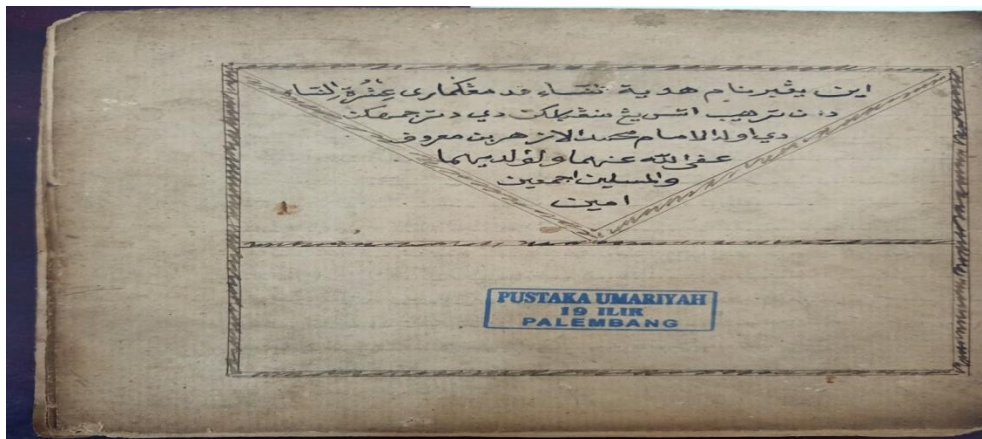 اين يڠبرنام هدية النساء فد مڠكماري عشرة النساء
دان ترهيب اتس يڠ منڤيكت دي دترجمهكن
دي اوله الامام محمد الازهر بن معروف
عفى الله عنهما ولوالديهما
والمسلمين اجمعين
امين
PUSTAKA UMARIYAH
19 ILIR
PALEMBANG